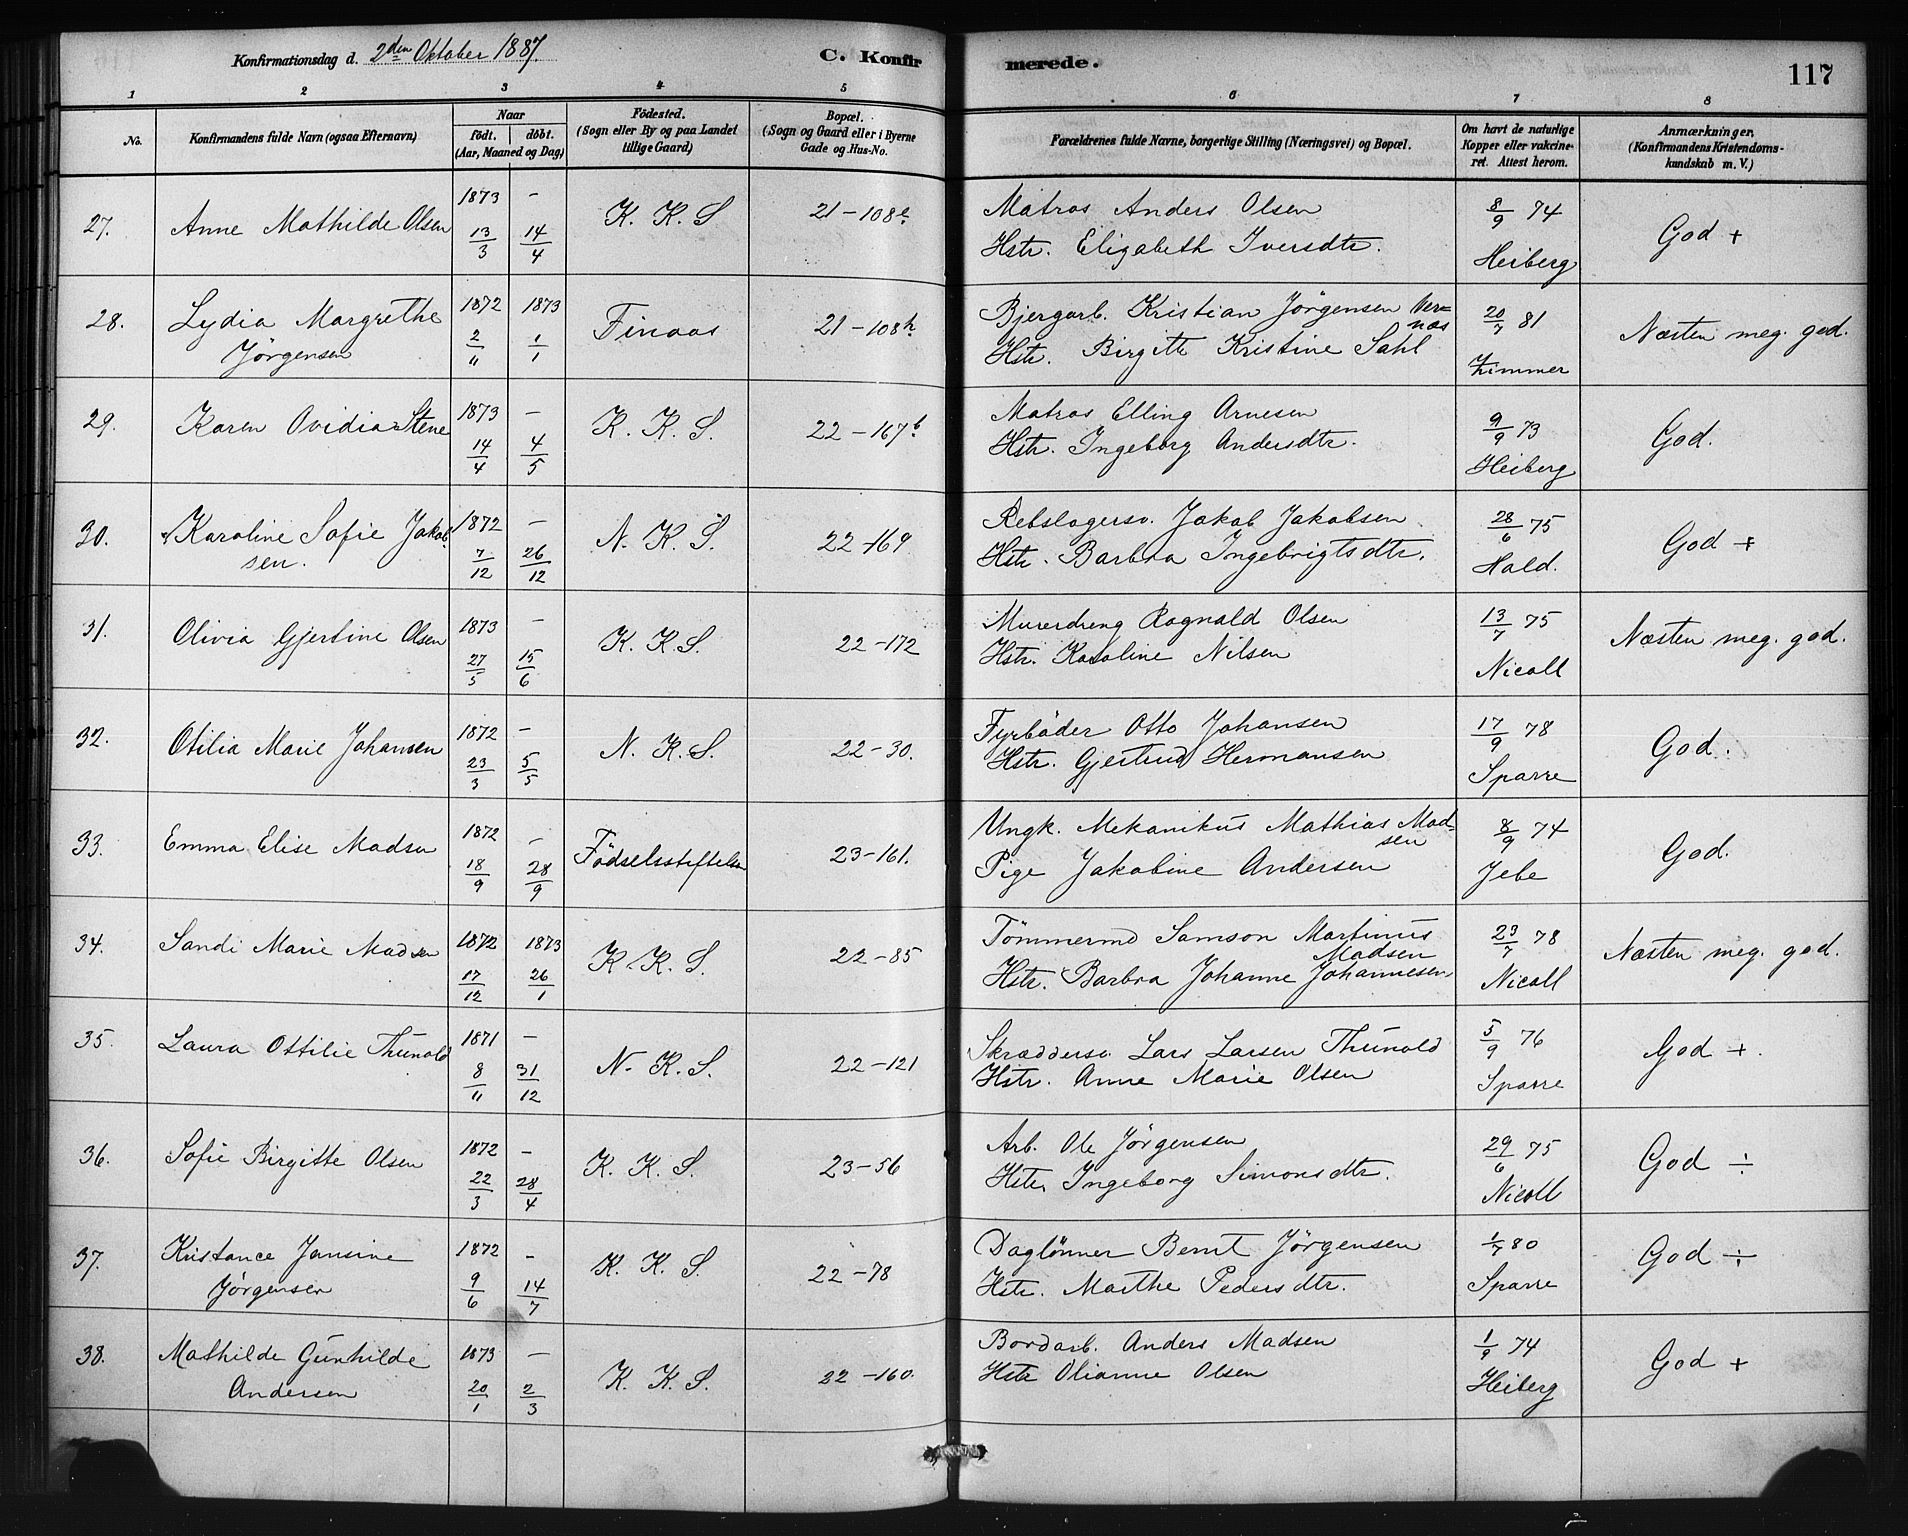 Konfirmationsdag d. 2den Oktober 1887. C. Konfirmerede. 117
1 2 3 4 5 6 7 8
No. Konfirmandens fulde Navn (ogsaa Efternavn) Naar födt. döbt. (Aar, Maaned og Dag) Födested. (Sogn eller By og paa Landet tillige Gaard) Bopæl. (Sogn og Gaard eller i Byerne Gade og Hus-No. Forældrenes fulde Navne, borgerlige Stilling (Næringsvei) og Bopæl. Om havt de naturlige Kopper eller vakcineret. Attest herom. Anmærkninger, (Konfirmandens Kristendomskundskab m. V.)
27. Anne Mathilde Olsen 1873 13/3 – 14/4 K. K. S 21 – 108e. Matros Anders Olsen
Hstr. Elizabeth Iversdtr. 8/9 74 Heiberg God +
28. Lydia Margrethe Jørgensen 1872 2/11 1873 1/1 Finaas 21 – 108h. Bjergarb. Kristian Jörgensen Vernæs
Hstr. Birgitte Kristine Sahl 20/7 81 Zimmer Næsten meg. god.
29. Karen Ovidia Stene 1873 14/4 – 4/5 K. K. S. 22 – 167b Matros Elling Arnesen
Hstr. Ingeborg Andersdtr. 9/9 73 Heiberg God.
30. Karoline Sofie Jakobsen. 1872 7/12 – 26/12 N. K. S. 22 – 169 Rebslagersv. Jakob Jakobsen
Hstr. Barbra Ingebrigtsdtr. 28/6 75 Hald. God +
31. Olivia Gjertine Olsen 1873 27/5 – 15/6 K. K. S. 22 – 172 Murerdreng Ragnald Olsen
Hstr. Karoline Nilsen 13/7 75 Nicoll Næsten meg. god.
32. Otilia Marie Johansen 1872 23/3 – 5/5 N. K. S. 22 – 30. Fyrböder Otto Johansen
Hstr. Gjertrud Hermansen 17/9 78 Sparre God.
33. Emma Elise Madsen 1872 18/9 – 28/9 Födselsstiftelsen 23 – 161. Ungk. Mekanikus Mathias Madsen
Pige Jakobine Andersen 8/9 74 Jebe God.
34. Sandi Marie Madsen 1872 17/12 1873 26/1 K. K. S. 22 – 85 Tömmermd Samson Martinus Madsen
Hstr. Barbra Johanne Johannesen 23/7 78 Nicoll Næsten meg. god.
35. Laura Ottilie Thunold 1871 8/11 – 31/12 N. K. S. 22 – 121 Skræddersv. Lars Larsen Thunold
Hstr. Anne Marie Olsen 5/9 76 Sparre God +.
36. Sofie Birgitte Olsen 1872 22/3 – 28/4 K. K. S. 23 – 56 Arb. Ole Jörgensen
Hstr. Ingeborg Simonsdtr. 29/6 75 Nicoll God ÷
37. Kristance Jansine Jørgensen 1872 9/6 – 14/7 K. K. S. 22 – 78 Daglönner Bernt Jörgensen
Hstr. Marthe Pedersdtr. 1/7 80 Sparre God ÷
38. Mathilde Gunhilde Andersen 1873 20/1 – 2/3 K. K. S. 22 – 160. Bordarb. Anders Madsen
Hstr Olianne Olsen 1/9 74 Heiberg God +